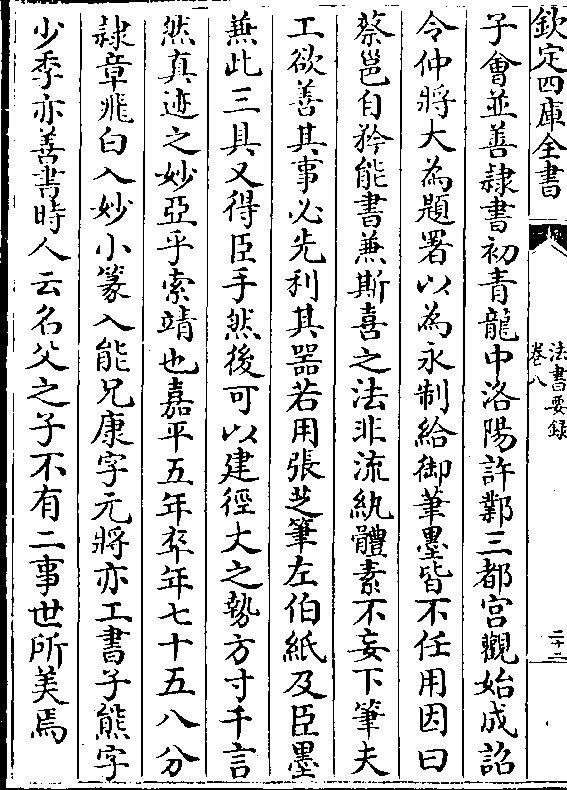 欽定四庫全書
法書要録
卷八
二十二
子會並善隷書初青龍中洛陽許鄴三都宫觀始成詔
令仲將大為題署以為永制給御筆墨皆不任用因曰
蔡邕自矜能書兼斯喜之法非流紈體素不妄下筆夫
工欲善其事必先利其器若用張芝筆左伯紙及臣墨
兼此三具又得臣手然後可以建徑丈之勢方寸千言
然真迹之妙亞乎索靖也嘉平五年卒年七十五八分
隷章飛白入妙小篆入能兄康字元將亦工書子熊字
少季亦善書時人云名父之子不有二事世所美焉